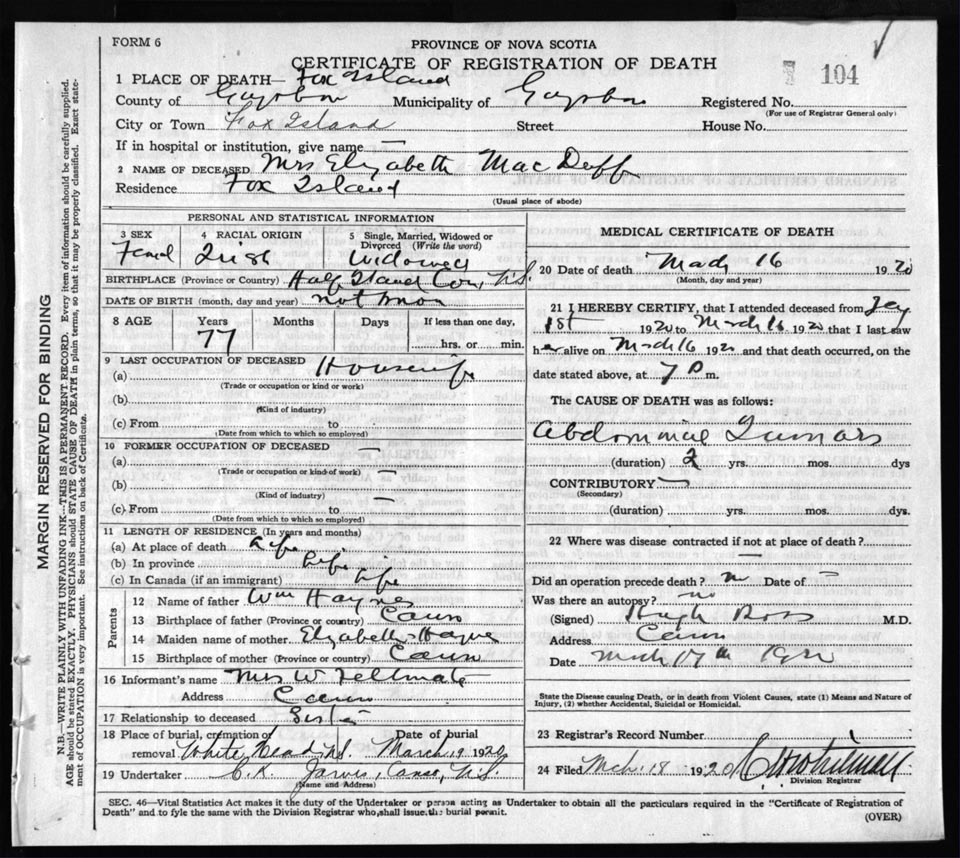 FORM 6
PROVINCE OF NOVA SCOTIA
CERTIFICATE OF REGISTRATION OF DEATH
104
1 PLACE OF DEATH— Fox Island
County of Guysboro Municipality of Guysboro Registered No.
(For use of Registrar General only)
City or Town Fox Island Street House No.
If in hospital or institution, give name —
2 NAME OF DECEASED Mrs Elizabeth MacDuff
Residence Fox Island
(Usual place of abode)
PERSONAL AND STATISTICAL INFORMATION
3 SEX 4 RACIAL ORIGIN 5 Single, Married, Widowed or Divorced (Write the word)
Irish Widowed
BIRTHPLACE (Province or Country) Half Island Cove, N.S.
DATE OF BIRTH (month, day and year) not
8 AGE Years Months Days If less than one day,
77 hrs. or min.
9 LAST OCCUPATION OF DECEASED
(a) Housewife
(Trade or occupation or kind or work)
(b)
(Kind of industry)
(c) From to
(Date from which to which so employed)
10 FORMER OCCUPATION OF DECEASED
(a)
(Trade or occupation or kind of work) —
(b)
(Kind of industry)
(c) From to —
(Date from which to which so employed)
11 LENGTH OF RESIDENCE (In years and months)
(a) At place of death life
(b) In province life
(c) In Canada (if an immigrant) life
Parents
12 Name of father Wm Haynes
13 Birthplace of father (Province or country) Canso
14 Maiden name of mother Elizabeth Hayne
15 Birthplace of mother (Province or country) Canso
16 Informant's name Mrs W
Address Canso
17 Relationship to deceased Sister
18 Place of burial, cremation or removal White Head N.S. Date of burial March 19 1920
19 Undertaker C. K. Jarvis, Canso, N.S.
(Name and Address)
MEDICAL CERTIFICATE OF DEATH
20 Date of death March 16 1920
(Month, day and year)
21 I HEREBY CERTIFY, that I attended deceased from
1st 1920 to March 16 1920 that I last saw
her alive on March 16 1920 and that death occurred, on the
date stated above, at 7 P m.
The CAUSE OF DEATH was as follows:
Abdominal Tumors
(duration) 2 yrs. mos. dys
CONTRIBUTORY —
(Secondary)
(duration) yrs. mos. dys.
22 Where was disease contracted if not at place of death?
—
Did an operation precede death? no Date of —
Was there an autopsy? no
(Signed) Hugh Ross M.D.
Address Canso
Date March 17th 1920
State the Disease causing Death, or in death from Violent Causes, state (1) Means and Nature of
Injury, (2) whether Accidental, Suicidal or Homicidal.
23 Registrar's Record Number
24 Filed Mch. 18 1920
Division Registrar
SEC. 46—Vital Statistics Act makes it the duty of the Undertaker or person acting as Undertaker to obtain all the particulars required in the "Certificate of Registration of
Death" and to fyle the same with the Division Registrar who shall issue the burial permit.
(OVER)
MARGIN RESERVED FOR BINDING
N.B.—WRITE PLAINLY WITH UNFADING INK—THIS IS A PERMANENT RECORD. Every item of information should be carefully supplied.
AGE should be stated EXACTLY. PHYSICIANS should STATE CAUSE OF DEATH in plain terms, so that it may be properly classified. Exact state-
ment of OCCUPATION is very important. See instructions on back of Certificate.